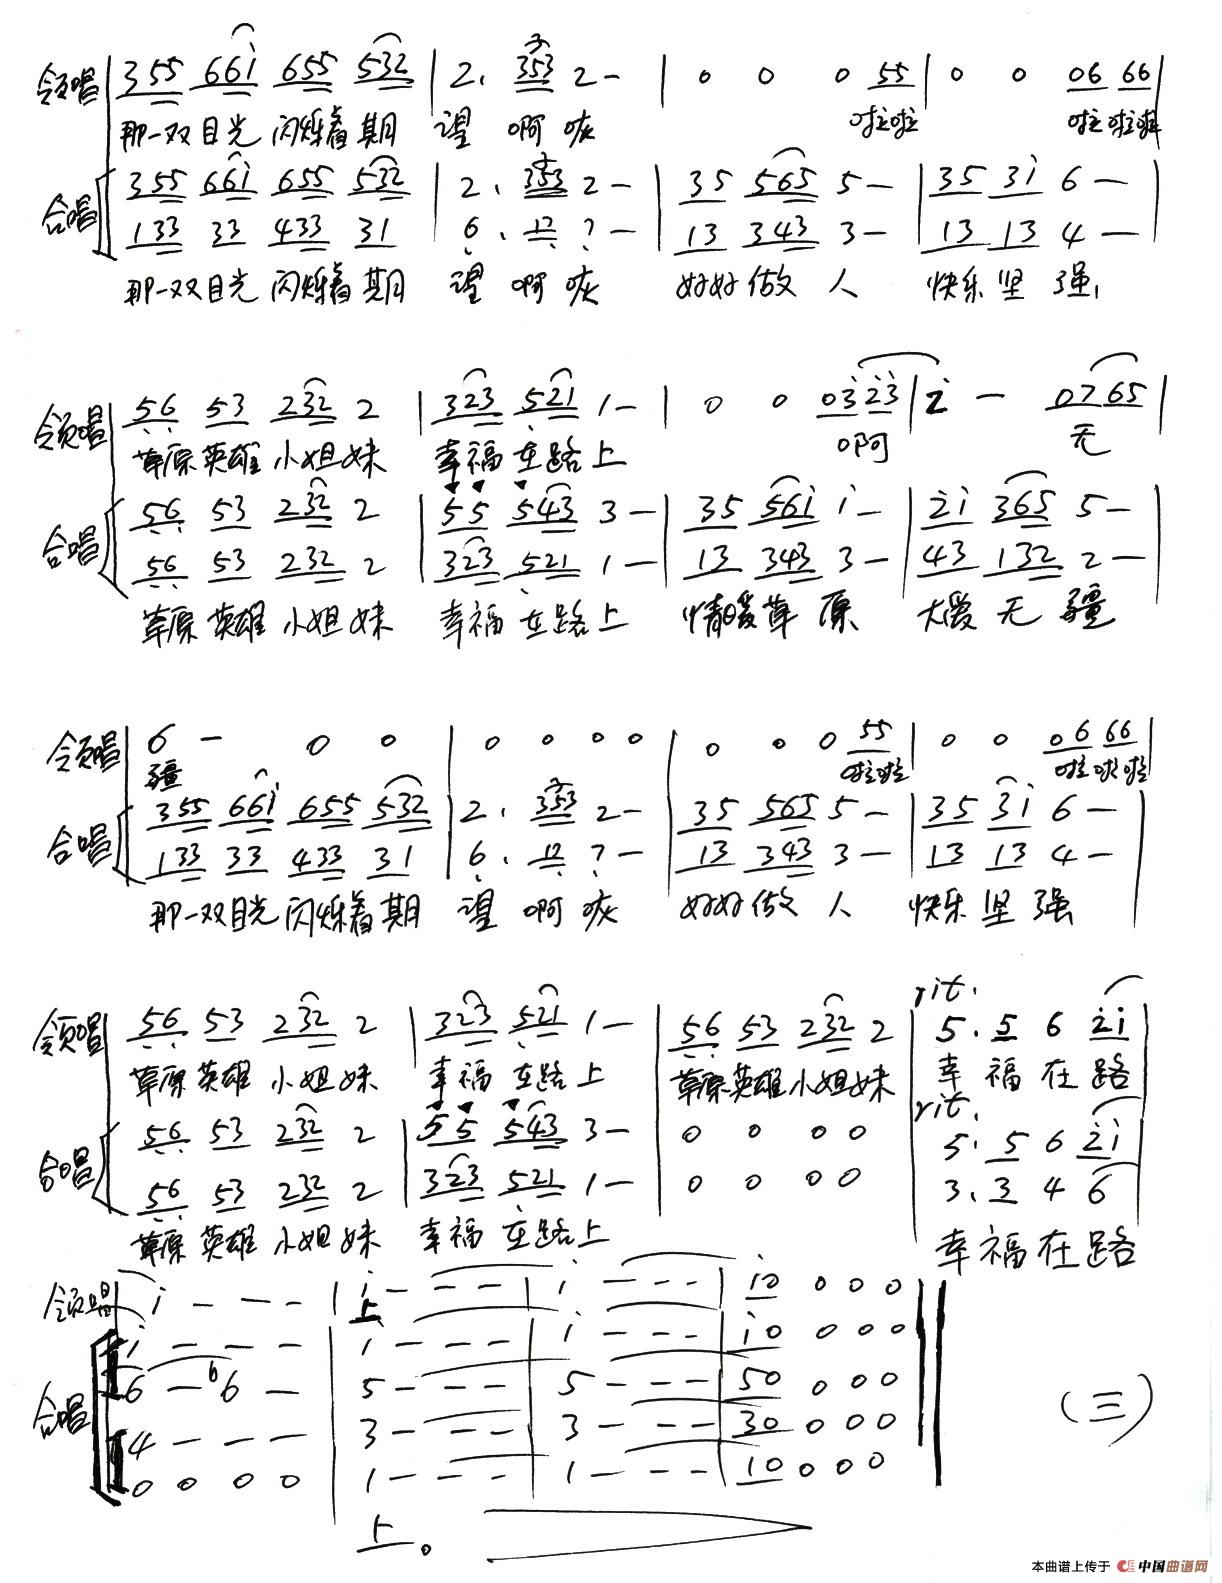 领唱 | 355 66i 655 532 | 2. 353 2 – | 0 0 0 55 | 0 0 06 66 |
那一双目光 闪烁着期 望 啊 咴 啦啦 啦啦啦
合唱 355 66i 655 532 | 2. 353 2 – | 35 565 5 – | 35 3i 6 – |
133 33 433 31 | 6. 12 7 – | 13 343 3 – | 13 13 4 – |
那一双目光 闪烁着期 望 啊 咴 好好做 人 快乐坚 强,
领唱 | 56 53 232 2 | 323 521 1 – | 0 0 0323 | 2 – 0765 |
草原英雄 小姐妹 幸福在路上 啊 无
合唱 56 53 232 2 | 55 543 3 – | 35 561 i – | 2i 365 5 – |
56 53 232 2 | 323 521 1 – | 13 343 3 – | 43 132 2 – |
草原 英雄 小姐妹 幸福 在路上 情暖草 原 大爱无 疆
领唱 | 6 – 0 0 | 0 0 0 0 | 0 0 0 55 | 0 0 06 66 |
疆 啦啦 啦啦啦
合唱 355 66i 655 532 | 2. 353 2 – | 35 565 5 – | 35 3i 6 – |
133 33 433 31 | 6. 12 7 – | 13 343 3 – | 13 13 4 – |
那一双目光 闪烁着期 望 啊 咴 好好做 人 快乐坚 强
rit.
领唱 | 56 53 232 2 | 323 521 1 – | 56 53 232 2 | 5. 5 6 2i |
草原英雄 小姐妹 幸福 在路上 草原英雄小姐妹 幸 福 在 路
rit.
合唱 56 53 232 2 | 55 543 3 – | 0 0 0 0 | 5. 5 6 2i |
56 53 232 2 | 323 521 1 – | 0 0 0 0 | 3. 3 4 6 |
草原 英雄 小姐妹 幸福 在路上 幸 福 在 路
领唱 | i – – – | i – – – | i – – – | i0 0 0 0 |
上
合唱 i – – – | 1 – – – | i – – – | i0 0 0 0 |
6 – 6 6 – | 5 – – – | 5 – – – | 50 0 0 0 |
4 – – – | 3 – – – | 3 – – – | 30 0 0 0 |
0 0 0 0 | 1 – – – | 1 – – – | 10 0 0 0 |
上。
(三)
本曲谱上传于 中国曲谱网